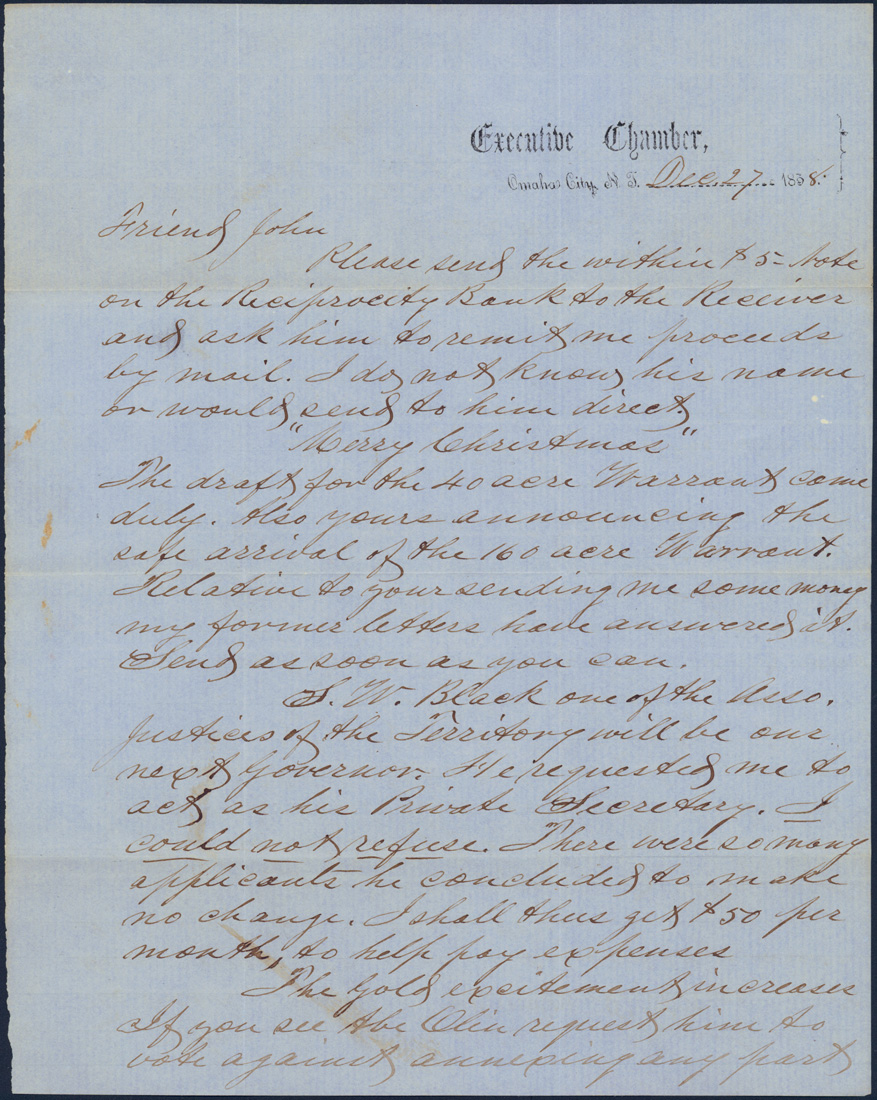 Executive Chamber,
Omaha City, N. T. Dec. 27 1858.
Friend John
Please send the within $5- Note
on the Reciprocity Bank to the Receiver
and ask him to remit me proceeds
by mail. I do not know his name
or would send to him direct.
"Merry Christmas"
The draft for the 40 acre Warrant came
duly. Also yours announcing the
safe arrival of the 160 acre Warrant.
Relative to your sending me some money
my former letters have answered it.
Send as soon as you can.
S. W. Black one of the Asso.
Justices of the Territory will be our
next Governor. He requested me to
act as his Private Secretary. I
could not refuse. There were so many
applicants he concluded to make
no change. I shall thus get $50 per
month, to help pay expenses
The Gold excitement increases
If you see Abe Olin request him to
vote against annexing any part